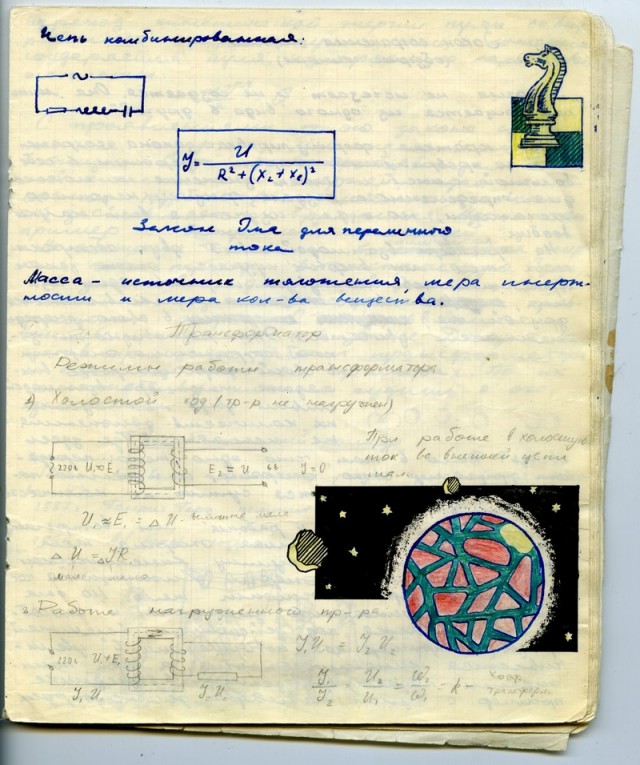 Цепь комбинированная:
~
У = U / R² + (X_L + X_c)²
Закон Ома для переменного
тока
Масса - источник тяготения, мера инерт-
ности и мера кол-ва вещества.
Трансформатор
Режимы работы трансформатора
1) Холостой ход (тр-р не нагружен)
220в U₁≈E₁ E₂ = U У=0
При работе в холостую
ток во внешней цепи
мал.
U₁ ≈ E₁ = Δ U -
Δ U = УR
2. Работа нагруженного тр-ра
220в У₁U₁ = У₂U₂
У₁/У₂ = U₂/U₁ = ω₂/ω₁ = k - коэф.
трансформ